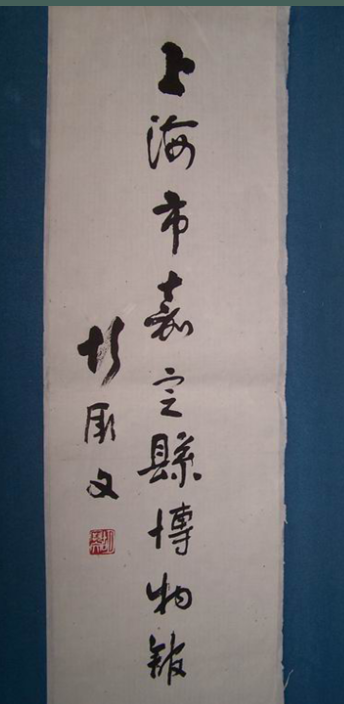 上海市嘉定縣博物館
胡厥文